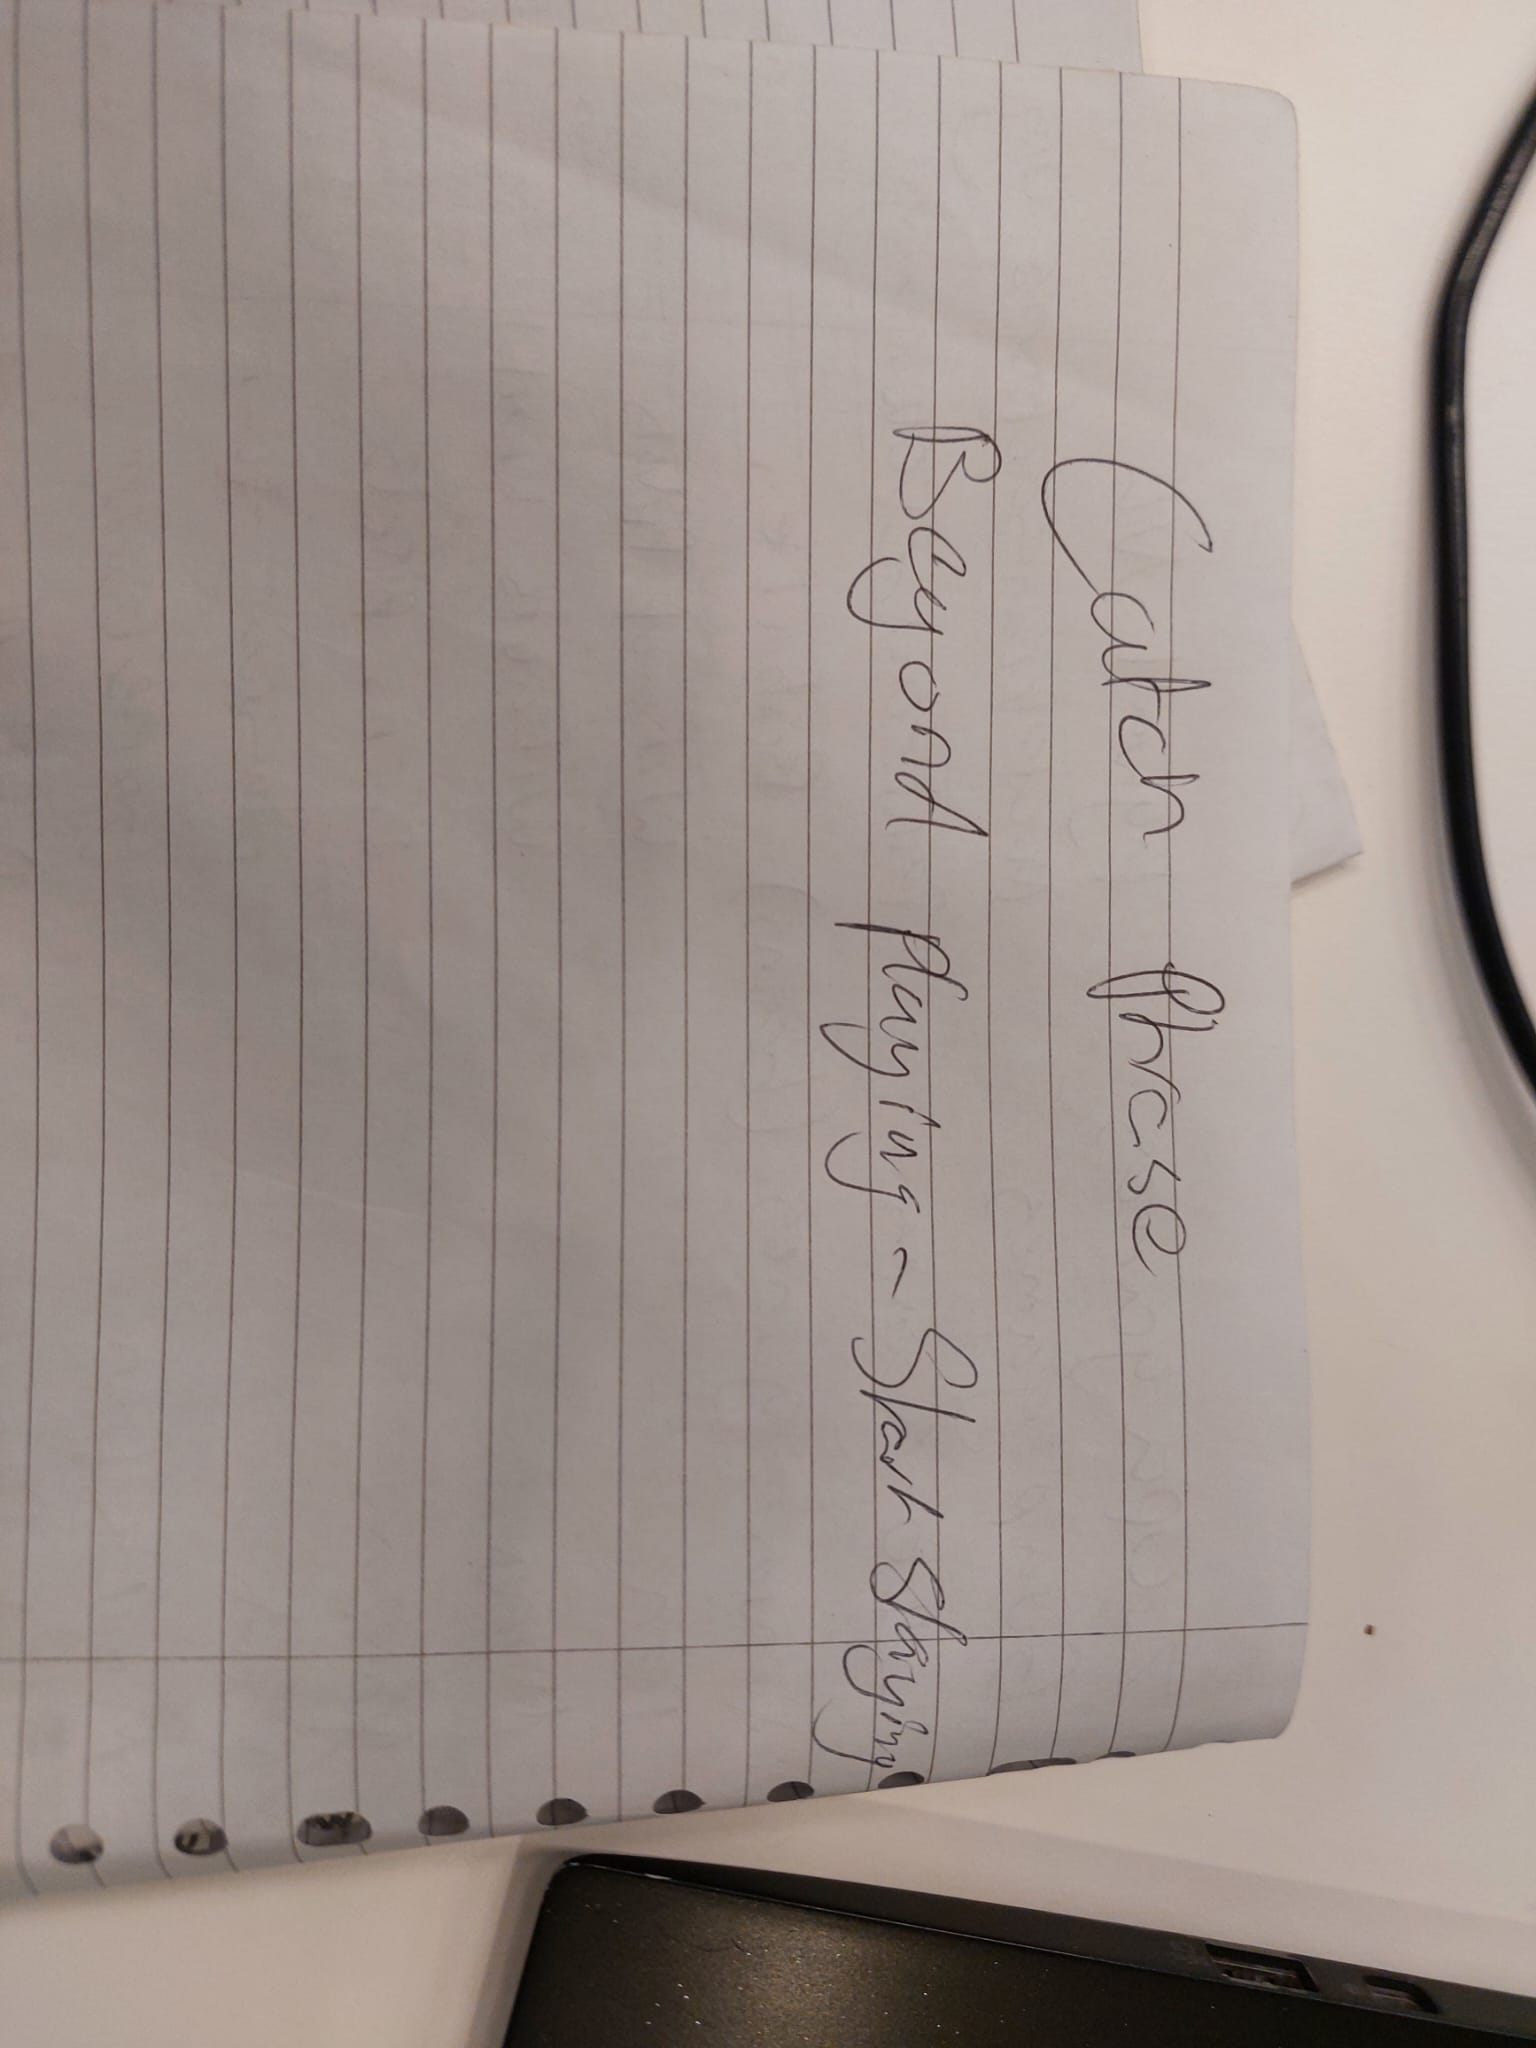 Catch Phrase
Beyond playing - Start slaying